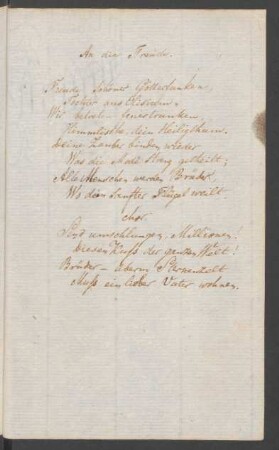 An die Freude.
Freude, schöner Götterfunken,
Tochter aus Elisium,
Wir betreten feuertrunken,
Himmlische, dein Heiligthum.
Deine Zauber binden wieder
Was die Mode streng getheilt;
Alle Menschen werden Brüder,
Wo dein sanfter Flügel weilt
Chor.
Seid umschlungen, Millionen!
Diesen Kuß der ganzen Welt!
Brüder – überm Sternenzelt
Muß ein lieber Vater wohnen.